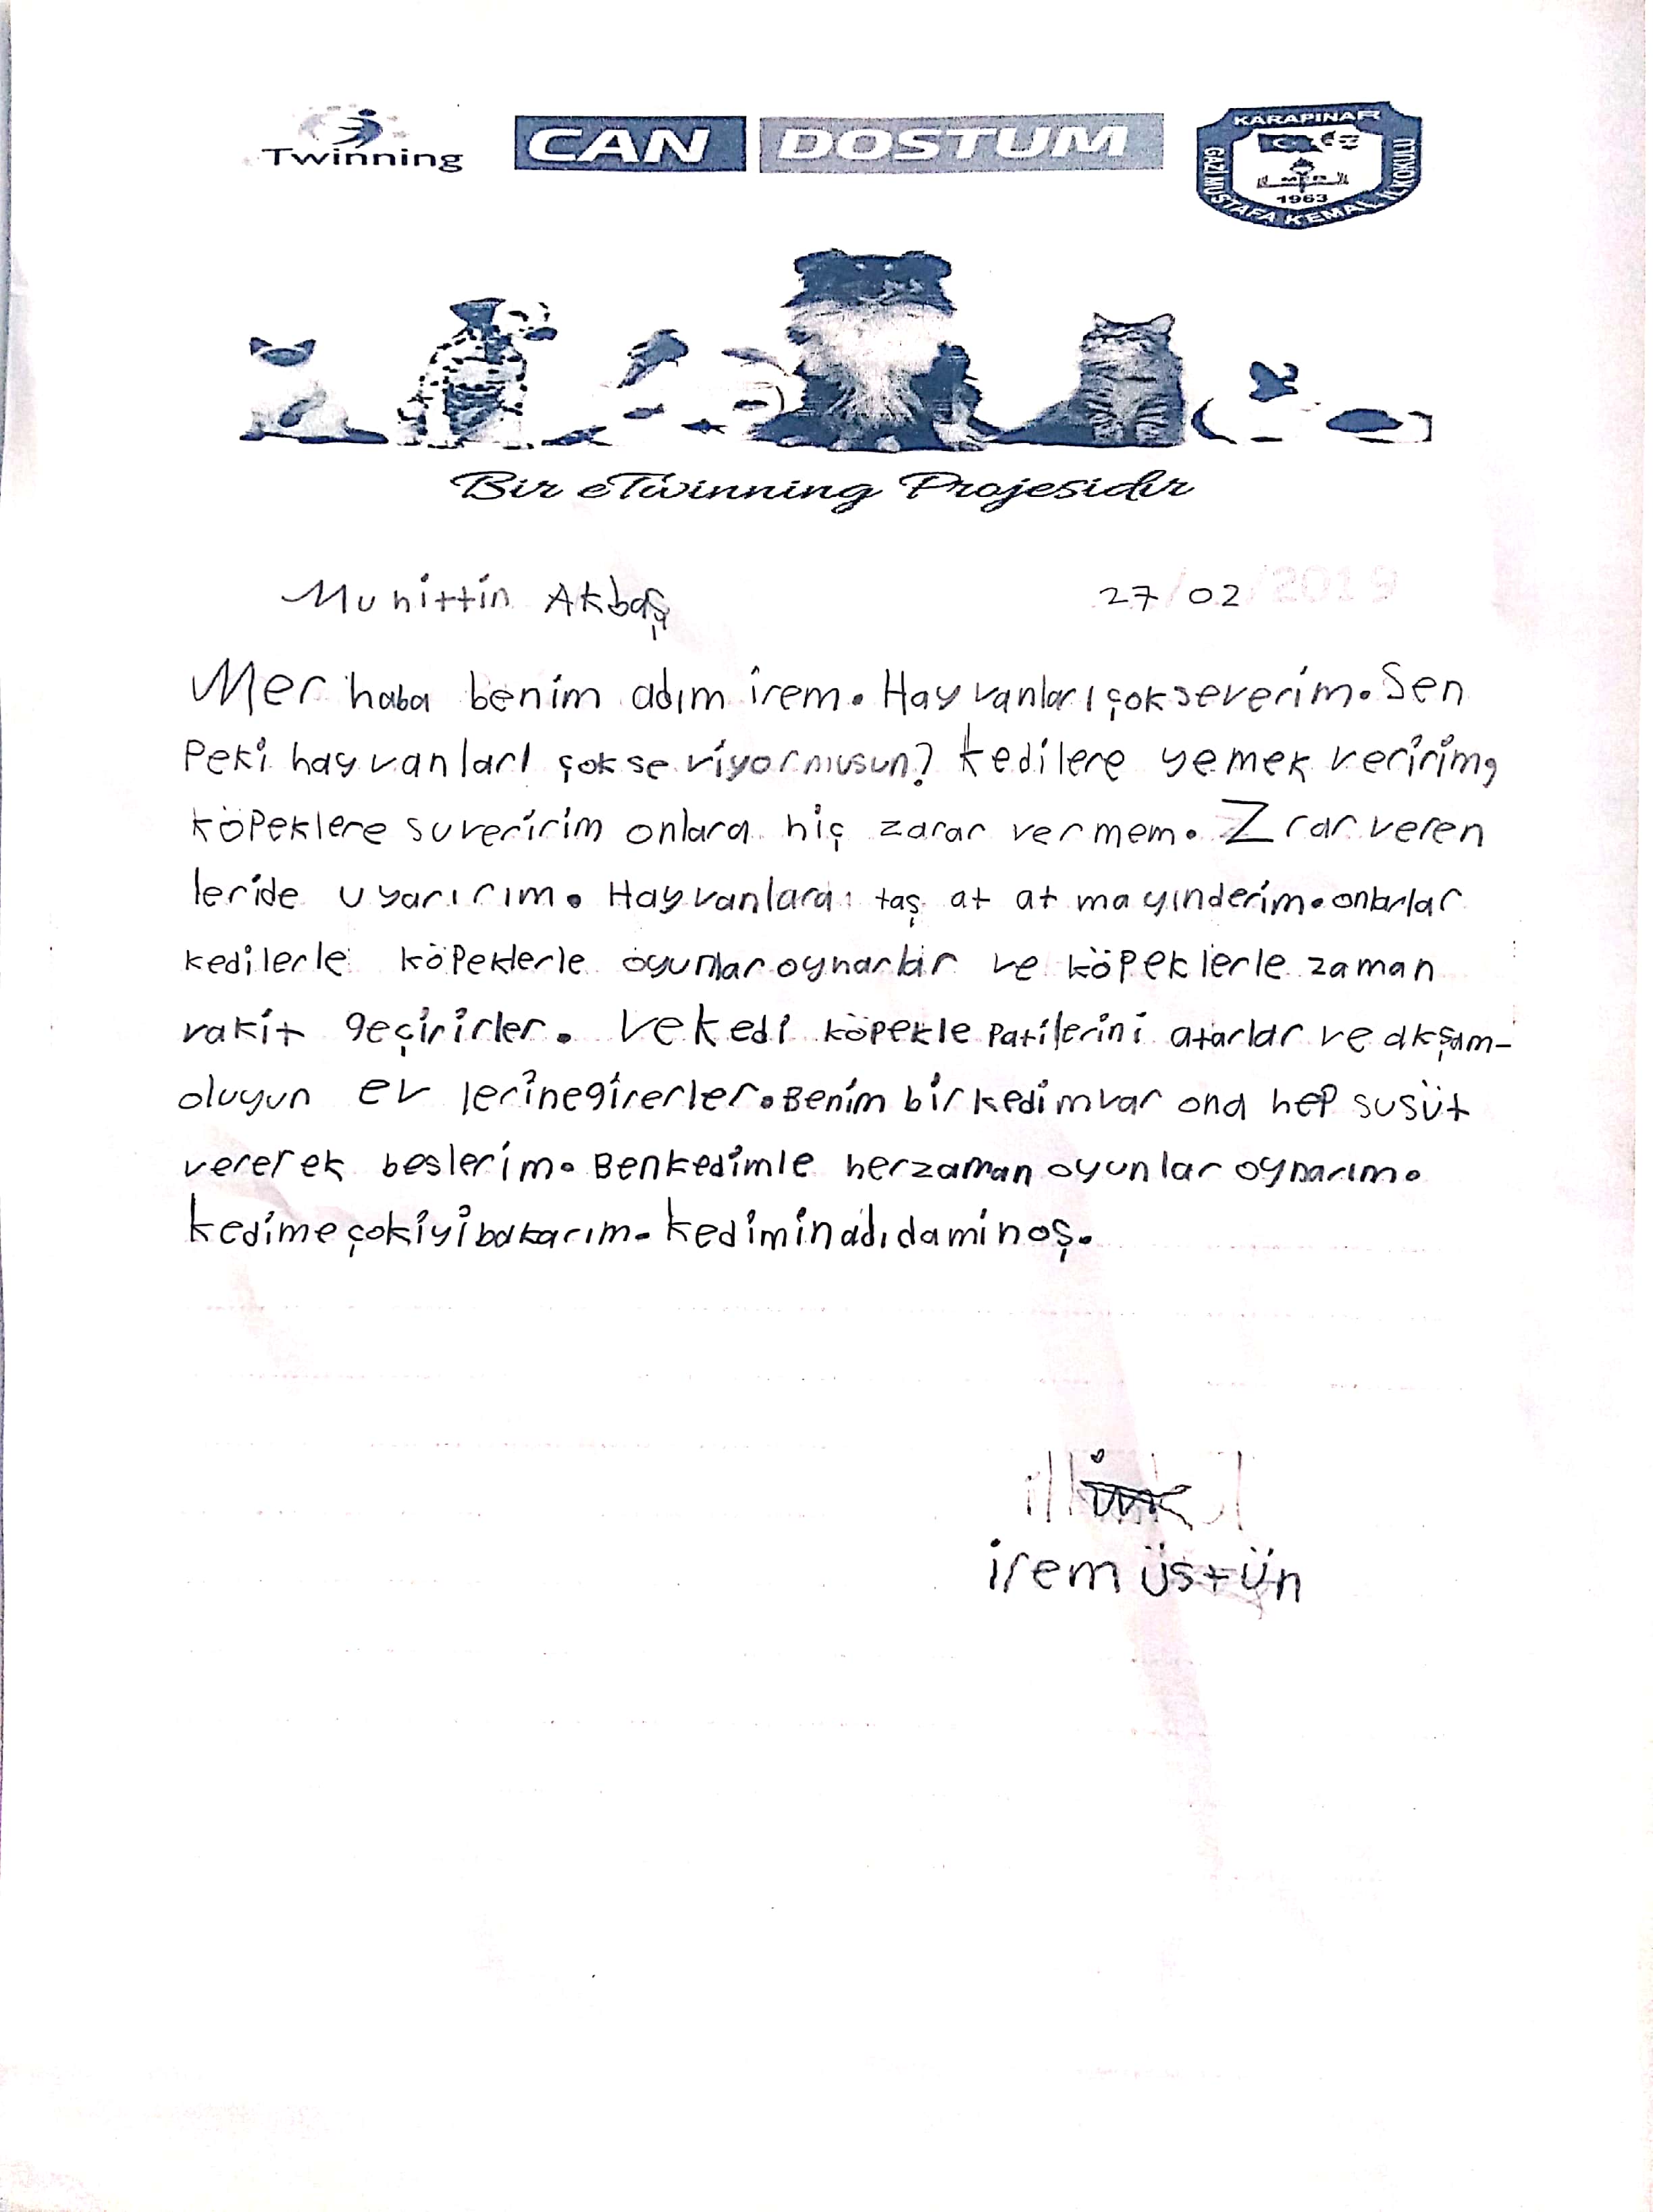 Twinning
CAN DOSTUM
KARAPINAR
GAZİ MUSTAFA KEMAL İLKOKULU
1963
Bir eTwinning Projesidir
Muhittin Akbaş
27/02/2019
Mer haba benim adım irem. Hay vanları çok severim. Sen
Peki hay vanları çok se viyormusun? kedilere yemek veririm,
köpeklere su veririm onlara hiç zarar ver mem. Zrar veren
leride uyarırım. Hay vanlara taş at at ma yın derim. onlarlar
kedilerle köpeklerle oyunlar oynarlar ve köpeklerle zaman
vakit geçirirler. Ve kedi köpekle Patilerini atarlar ve akşam-
oluyun ev lerine girerler. Benim bir kedim var ona hep su süt
vererek beslerim. Ben kedimle her zaman oyunlar oynarım.
kedime çok iyi bakarım. kedimin adı da minoş.
irem üstün